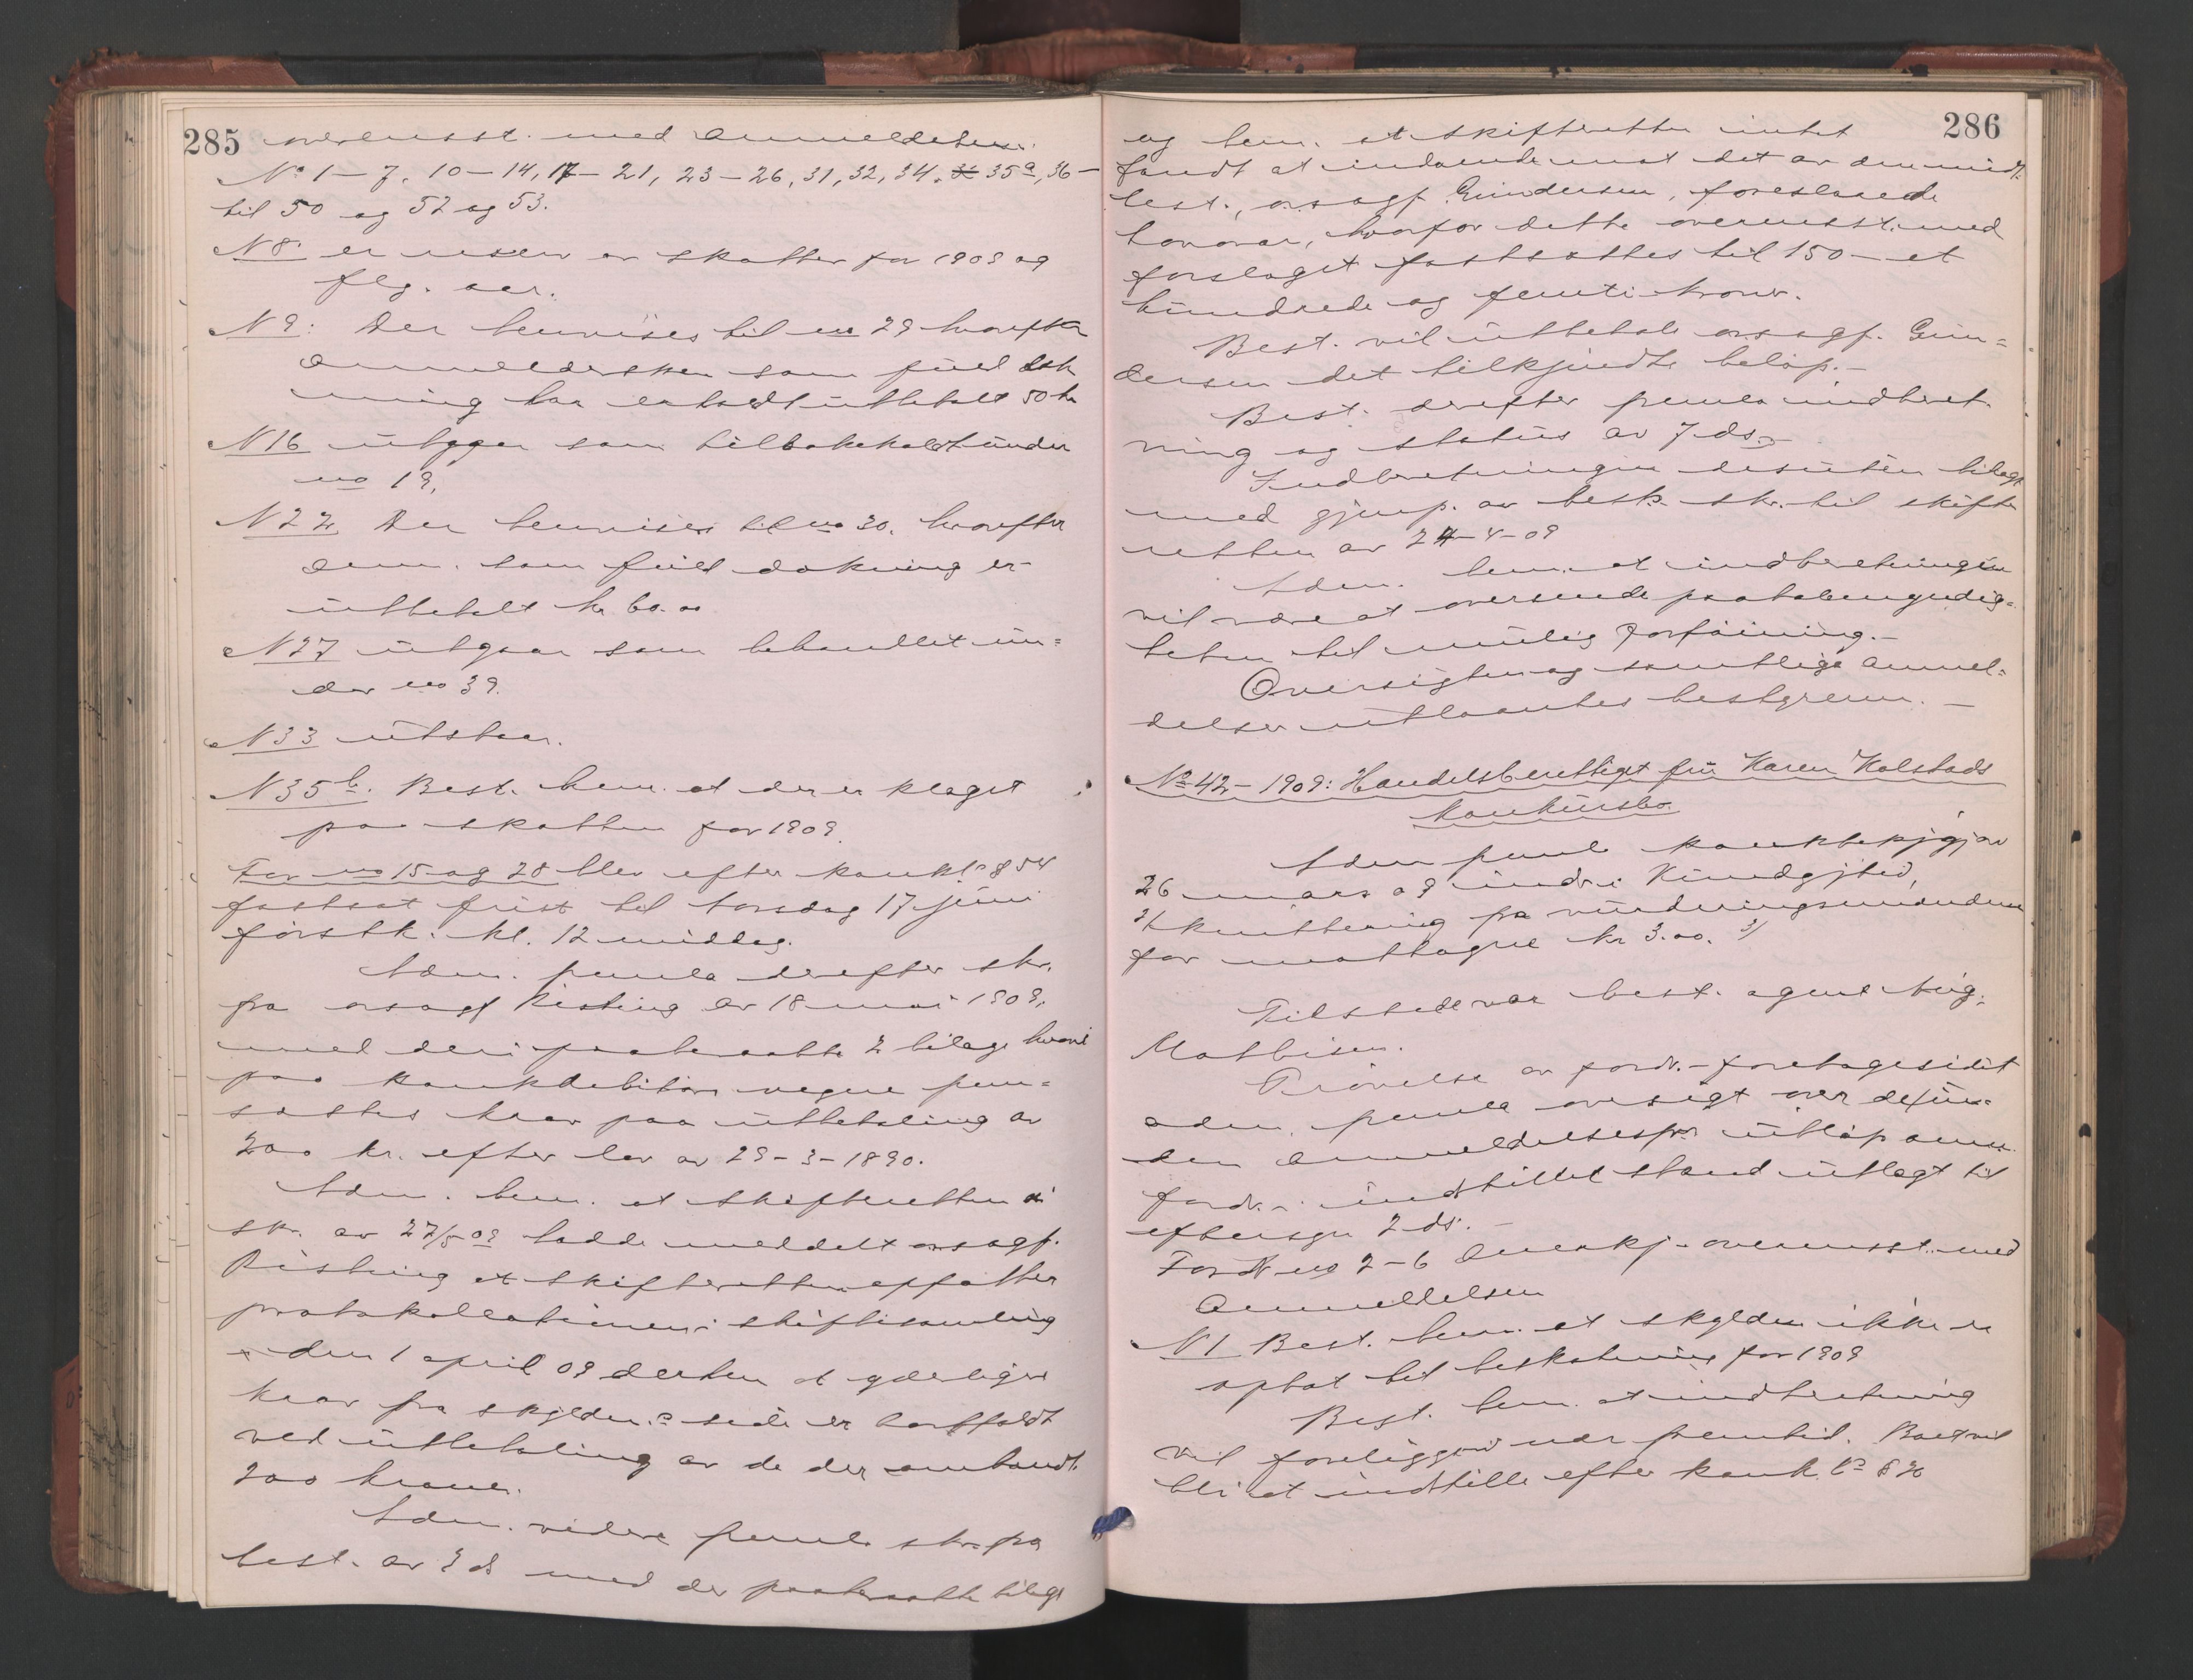 285
overensst. med anmeldelsen:
No 1 – 7, 10 – 14, 17 – 21, 23 – 26, 31, 32, 34, 35a, 36 –
til 50 og 52 og 53.
N 8 er av skatter for 1909 og
flg. aar.
N 9: Der henvises til no 29 hvorefter
anmeldersken som fuld dæk
ning har erholdt utbetalt 50 kr
N 16 utgaar som tilbakekaldt under
no 19.
N 22 Der henvises til no 30. hvorefter
anm. som fuld dækning er
utbetalt kr 60.00
N 27 utgaar som behandlet un=
der no 39.
N 33 utstaar.
N 35b. Best. bem. at der er klaget
paa skatten for 1909.
For no 15 og 28 blev efter konkl. § 54
fastsat frist til torsdag 17 juni
førstk. kl. 12 middag.
Adm. freml. derefter skr.
fra orsagf Risting av 18 mai 1909,
med deri paaberaabte 2 bilage hvori
paa konkdebitors vegne frem=
sættes krav paa utbetaling av
200 kr. efter lov av 29-3-1890.
Adm. bem. at skifteretten i
skr. av 27/5 09 hadde meddelt orsagf.
Risting at skifteretten opfatter
protokollationen i skiftesamling
den 1 april 09 derhen at yderligere
krav fra skyldn.s side er bortfaldt
ved utbetaling av de der omhandl.
200 kroner.
Adm. videre freml. skr. fra
best. av 3 ds med der paaberaabte bilage
286
og bem. at skifteretten intet
fandt at indvende mot det av den midl.
best., orsagf. Gundersen, foreslaaede
honorar, hvorfor dette overensst. med
forslaget fastsattes til 150 – et
hundrede og femti – kroner.
Best. vil utbetale orsagf. Gun=
dersen det tilkjendte beløp. –
Best. derefter freml. indberet
ning og status av 7 ds. –
Indberetningen desuten bilagt
med gjenp. av best. skr. til skifte
retten av 24-4-09
Adm. bem. at indberetningen
vil være at oversende paatalemyndig=
heten til mulig forføining. –
Oversigten og samtlige anmel=
delser utlaantes bestyreren. –
No 42 – 1909: Handelsberettiget fru Karen Kolstads
konkursbo.
Adm freml konkbekjgjør
26 mars 09 indr. i Kundgjtid,
2/ kvittering fra vurderingsmændene
for mottagne kr 3.00. 3/
Tilstede var best. agent Aug.
Mathisen.
Prøvelse av fordr. – foretages idet
adm. freml. oversigt over de in=
den anmeldelsesfr. utløp anm.
fordr. – i indstillet stand utlagt til
eftersyn 2 ds. –
Fordr no 2-6 anerkj. overensst. med
Anmeldelsen
N 1 Best. bem. at skylden ikke er
optat til beskatning for 1909
Best. bem. at indberetning
vil foreligge i nær fremtid. Boet vil
bli at indstille efter konk. l